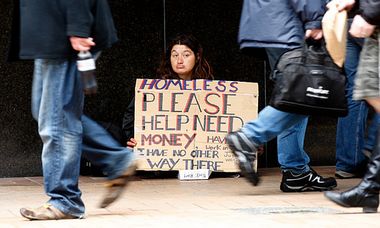 HOMELESS
PLEASE
HELP. NEED
MONEY. HAVE
I HAVE NO OTHER
WAY THERE